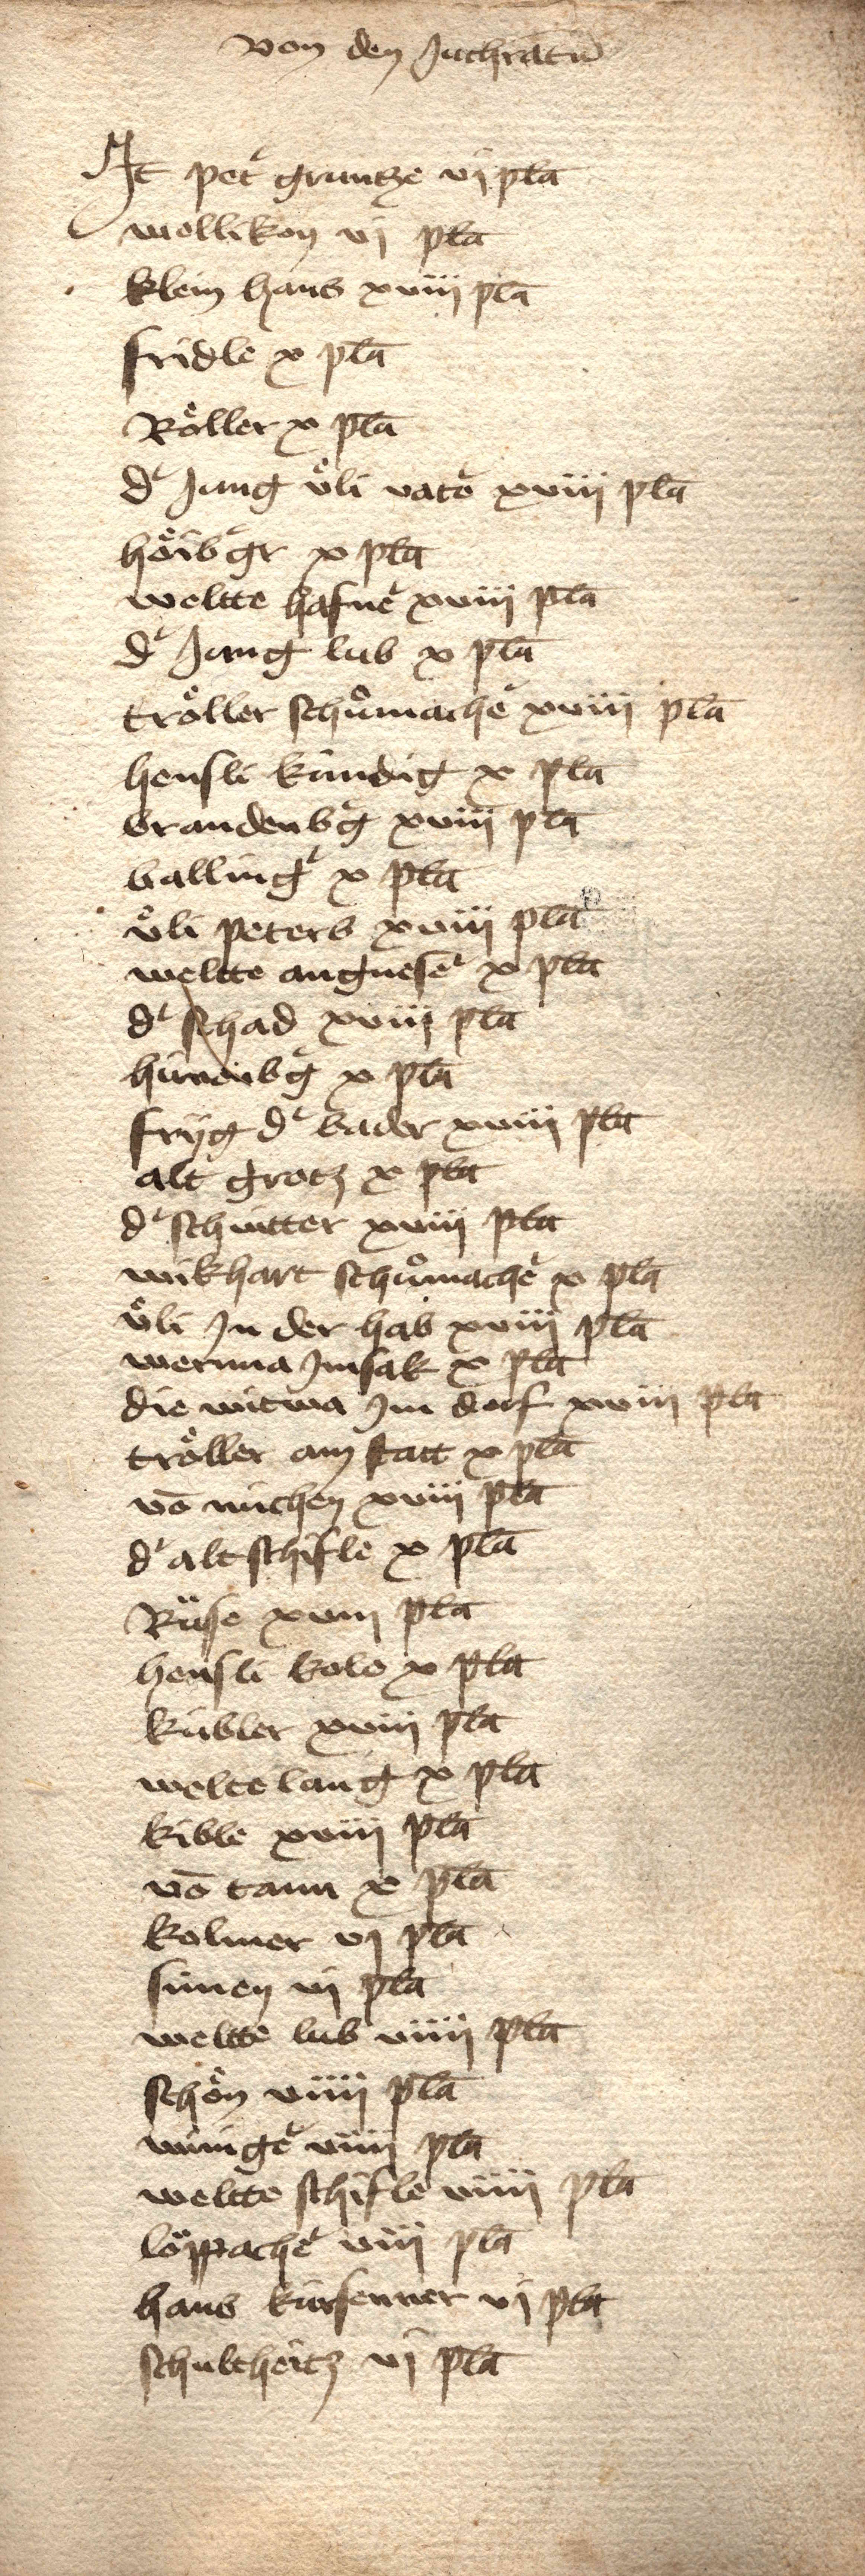 von den Juchratn̄
It pet͛ gruntze vj pla̅
wollikon vj pla̅
klein hans xviij pla̅
fridle x pla̅
Roͤller x pla̅
d͛ Jung uͦli vat͛ xviij pla̅
hoͤib͛gr x pla̅
weltte hafne͛ xviij pla̅
d͛ Jung lub x pla̅
troͤller schuͦmache͛ xviij pla̅
hensli kündig x pla̅
brandenb͛g xviij pla̅
balling͛ x pla̅
uͦli peters xviij pla̅
weltte angnese͛ x pla̅
d͛ schad xviij pla̅
hünenb͛g x pla̅
frijg d͛ bader xviij pla̅
alt grotz x pla̅
d͛ schnitter xviij pla̅
wikhart schuͦmache͛ x pla̅
uͦli In der hab xviij pla̅
wernna Imsak x pla̅
die witwa Im dorf xviij pla̅
troͤller am statt x pla̅
vo̅ michen xviij pla̅
d͛ alt schifle x pla̅
Rüse xviij pla̅
hensli kolo x pla̅
kübler xviij pla̅
welte lang x pla̅
kible xviij pla̅
vo̅ tann x pla̅
kolmer vj pla̅
simen vj pla̅
weltte lub viiij pla̅
schoͤn viiij pla̅
winige͛ viiij pla̅
weltte schifle viiij pla̅
loͤppache͛ viij pla̅
hans kürsenner vj pla̅
schultheitz vj pla̅